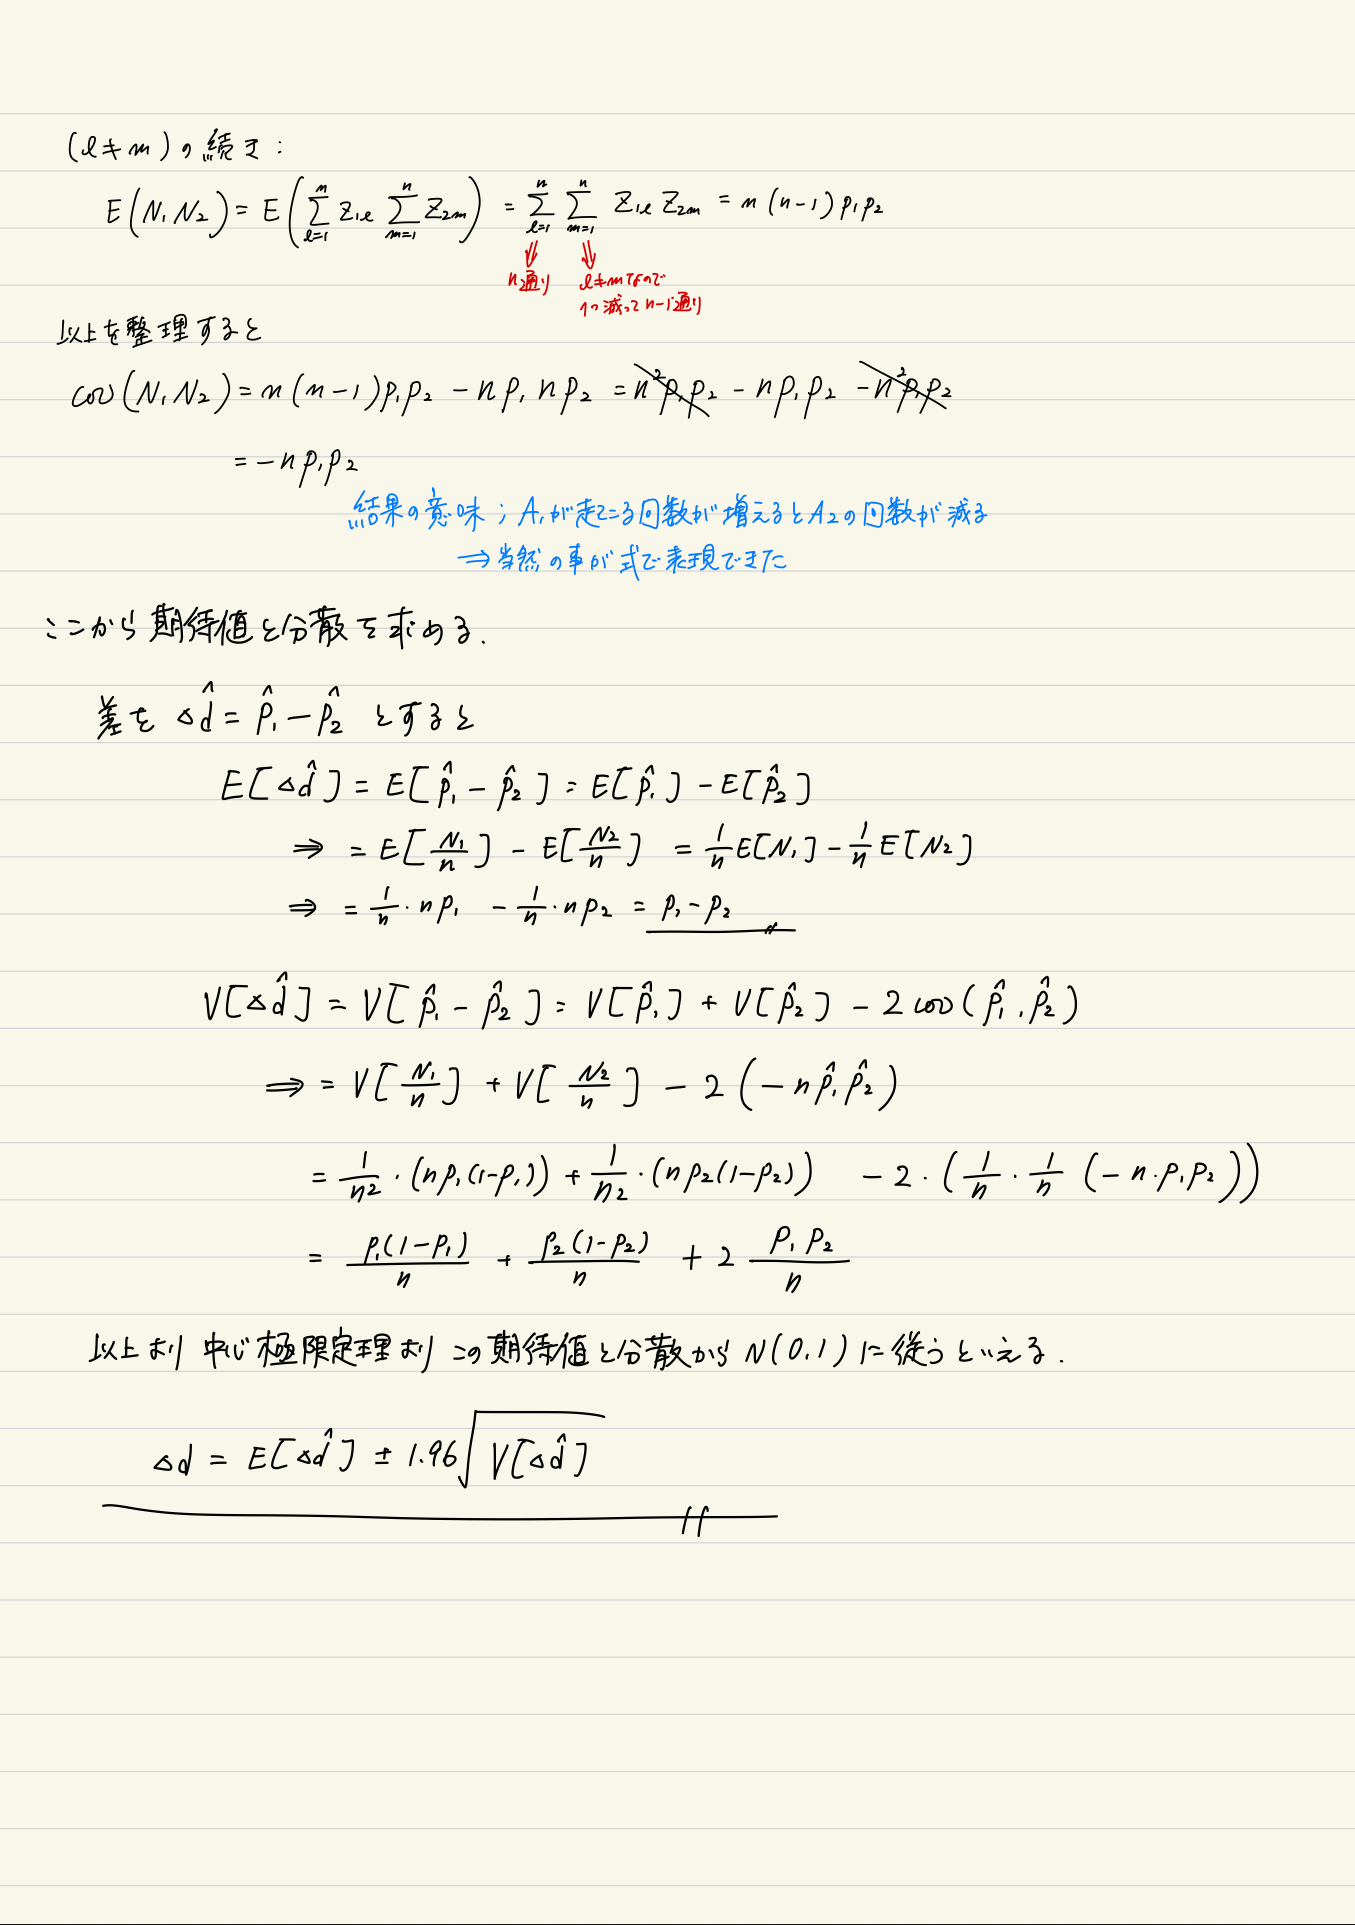 (l≠m)の続き:
E(N₁N₂) = E(Σ_{l=1}^{n} Z₁l Σ_{m=1}^{n} Z₂m) = Σ_{l=1}^{n} Σ_{m=1}^{n} Z₁l Z₂m = n(n-1)p₁p₂
⇓ ⇓
n通り l≠mなので
1つ減ってn-1通り
以上を整理すると
cov(N₁N₂) = n(n-1)p₁p₂ - np₁np₂ = n²p₁p₂ - np₁p₂ - n²p₁p₂
= -np₁p₂
結果の意味; A₁が起こる回数が増えるとA₂の回数が減る
⇒ 当然の事が式で表現できた
ここから期待値と分散を求める.
差を △d̂ = p̂₁ - p̂₂ とすると
E[△d̂] = E[p̂₁ - p̂₂] = E[p̂₁] - E[p̂₂]
⇒ = E[N₁/n] - E[N₂/n] = 1/n E[N₁] - 1/n E[N₂]
⇒ = 1/n · np₁ - 1/n · np₂ = p₁ - p₂
V[△d̂] = V[p̂₁ - p̂₂] = V[p̂₁] + V[p̂₂] - 2cov(p̂₁, p̂₂)
⇒ = V[N₁/n] + V[N₂/n] - 2(-np̂₁p̂₂)
= 1/n² · (np₁(1-p₁)) + 1/n² · (np₂(1-p₂)) - 2 · (1/n · 1/n (-n·p₁p₂))
= p₁(1-p₁)/n + p₂(1-p₂)/n + 2 p₁p₂/n
以上より 中心極限定理より この期待値と分散から N(0,1)に従うといえる.
△d = E[△d̂] ± 1.96√V[△d̂]